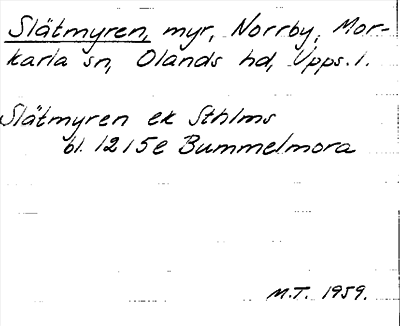 Slätmyren, myr, Norrby, Mor-
karla sn, Olands hd, Upps. l.
Slätmyren ek Sthlms
bl. 1215e Bummelmora
M.T. 1959.